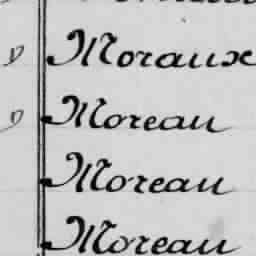 y Moraux
y Moreau
Moreau
Moreau